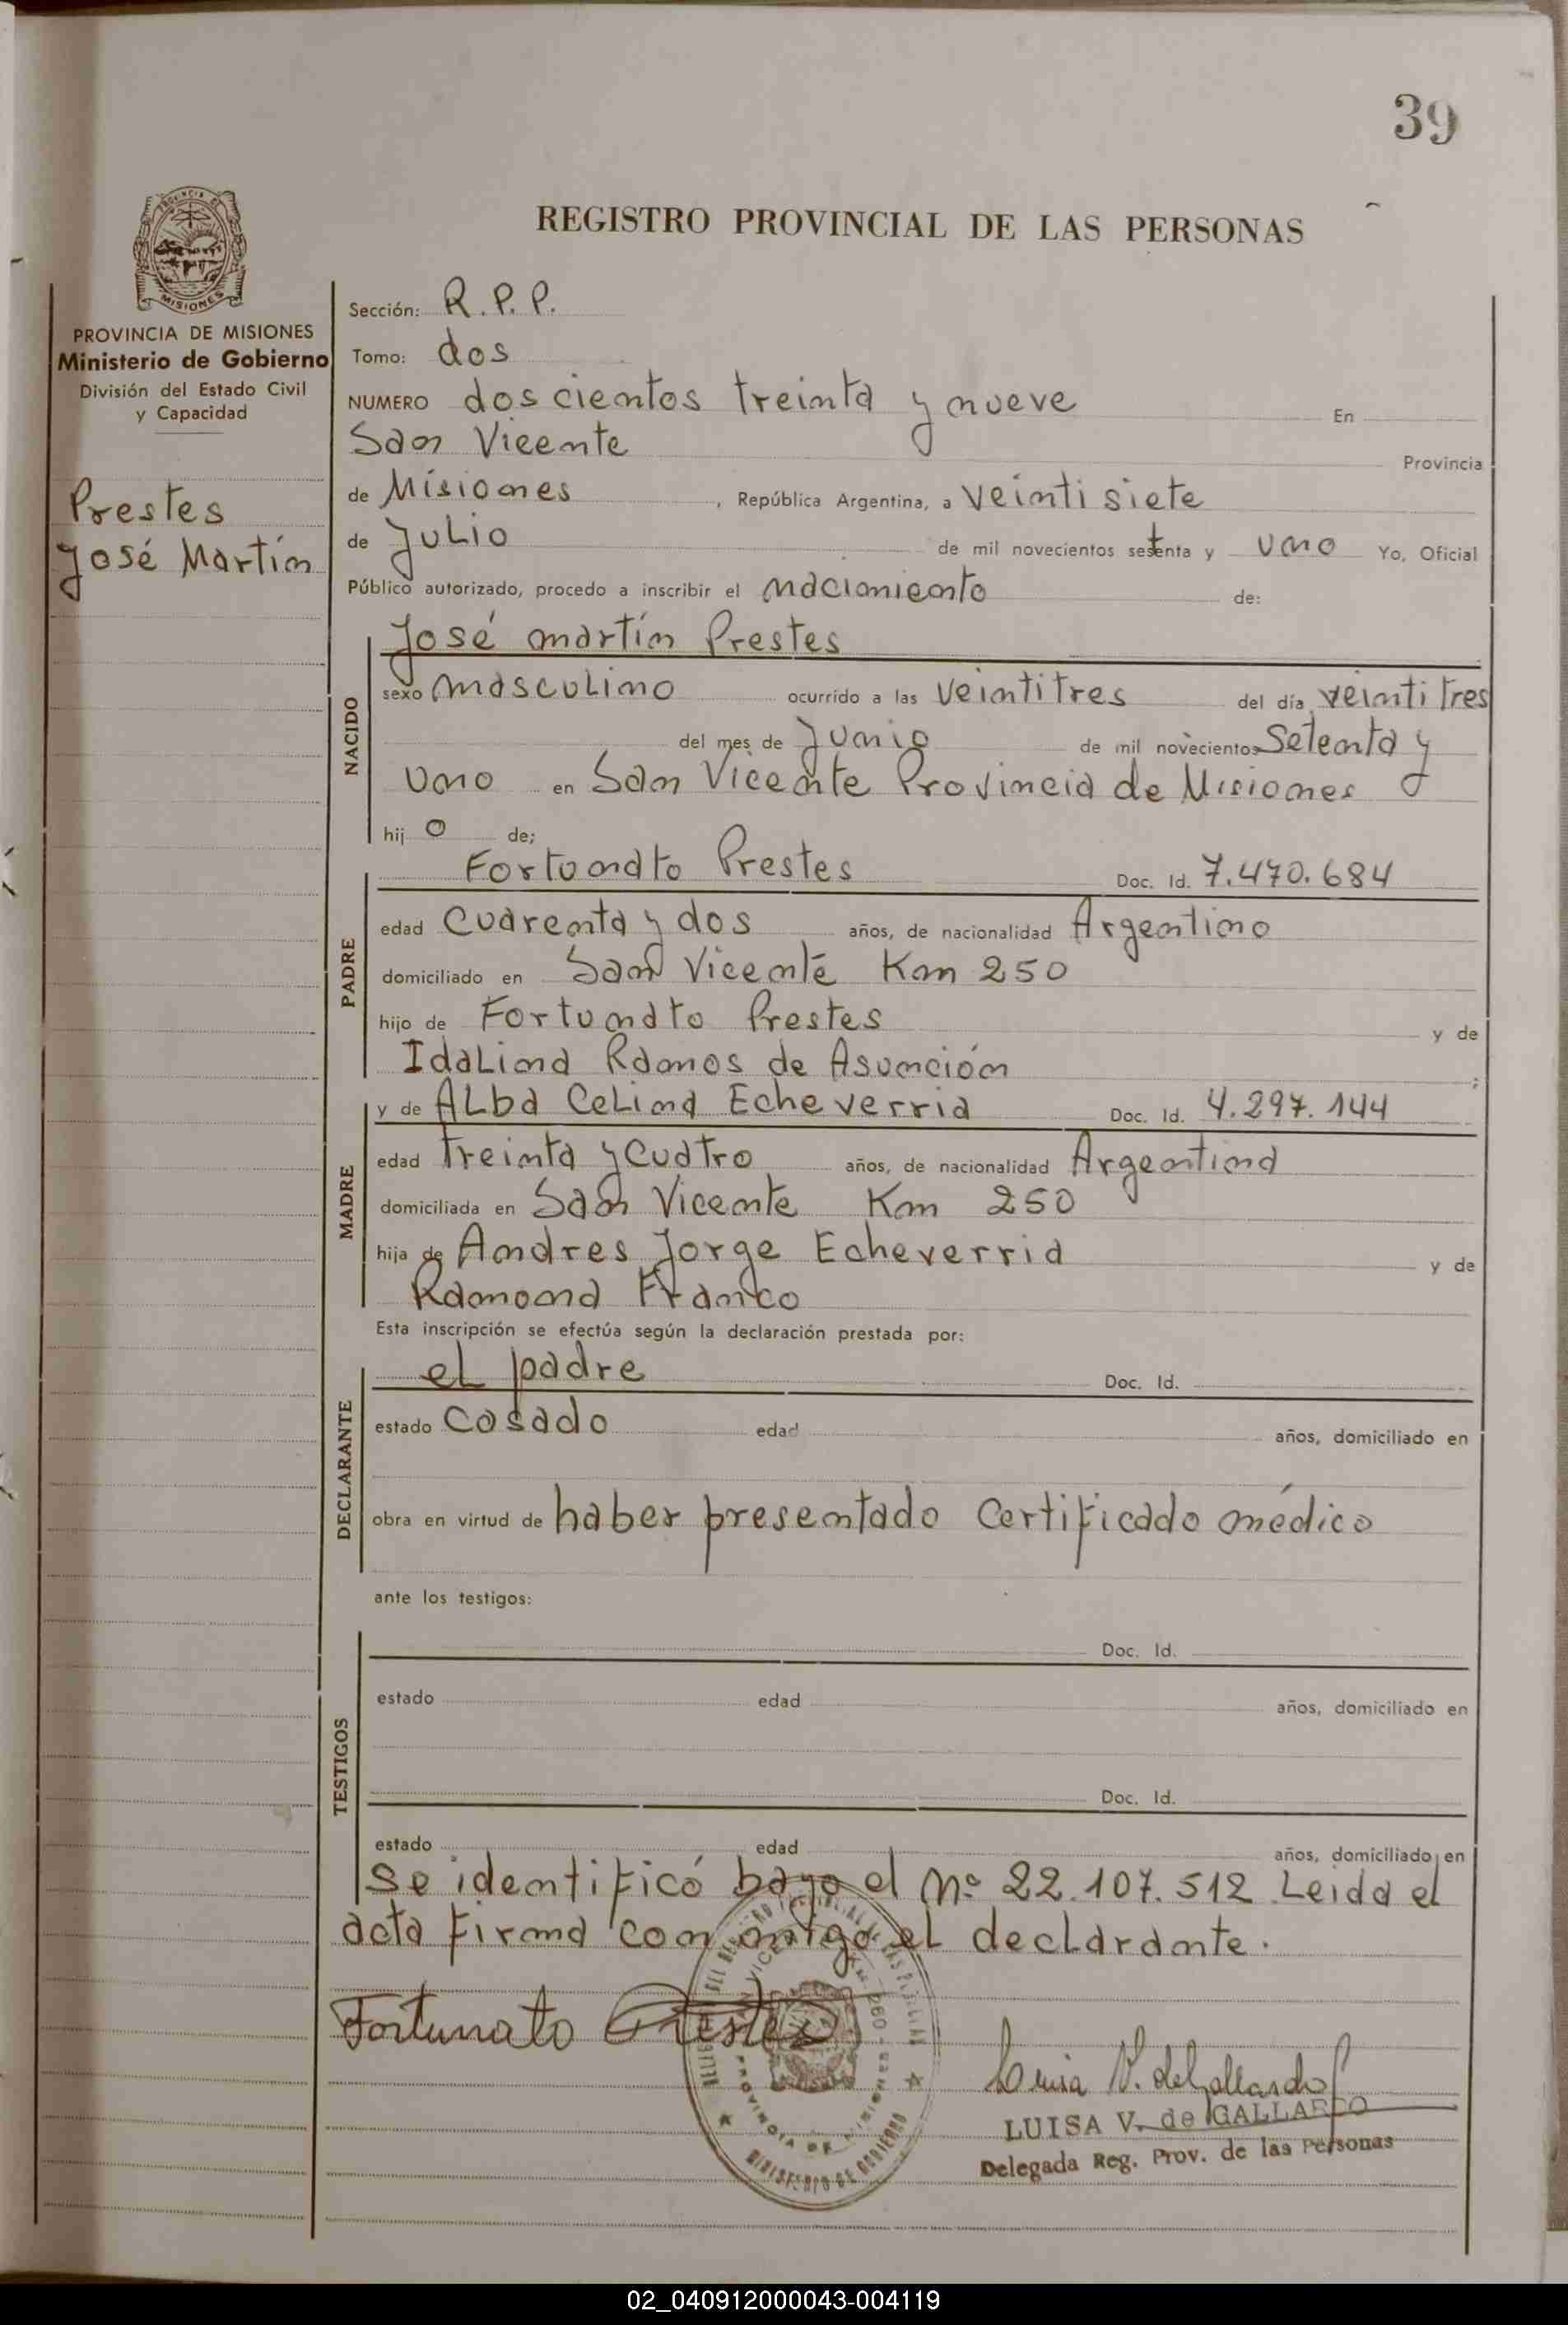 39
REGISTRO PROVINCIAL DE LAS PERSONAS
PROVINCIA DE
MISIONES
PROVINCIA DE MISIONES
Ministerio de Gobierno
División del Estado Civil
y Capacidad
Prestes
José Martín
Sección: R.P.P.
Tomo: dos
NUMERO doscientos treinta y nueve En
San Vicente Provincia
de Misiones, República Argentina, a veintisiete
de Julio de mil novecientos setenta y uno Yo, Oficial
Público autorizado, procedo a inscribir el nacimiento de:
NACIDO
José martín Prestes
sexo masculino ocurrido a las veintitres del día veintitres
del mes de Junio de mil novecientos setenta y
uno en San Vicente Provincia de Misiones
hijo de;
PADRE
Fortunato Prestes Doc. Id. 7.470.684
edad Cuarenta y dos años, de nacionalidad Argentino
domiciliado en San Vicente Km 250
hijo de Fortunato Prestes y de
Idalina Ramos de Asunción;
MADRE
y de Alba Celina Echeverria Doc. Id. 4.297.144
edad treinta y cuatro años, de nacionalidad Argentina
domiciliada en San Vicente Km 250
hija de Andres Jorge Echeverria y de
Ramona Franco
Esta inscripción se efectúa según la declaración prestada por:
DECLARANTE
el padre Doc. Id.
estado Casado edad años, domiciliado en
obra en virtud de haber presentado Certificado médico
ante los testigos:
TESTIGOS
Doc. Id.
estado edad años, domiciliado en
Doc. Id.
estado edad años, domiciliado en
Se identificó bajo el Nº 22.107.512 Leida el
acta firma conmigo el declarante.
Fortunato Prestes
PROVINCIA DE MISIONES
MINISTERIO DE GOBIERNO
Luisa V. de Gallardo
LUISA V. de GALLARDO
Delegada Reg. Prov. de las Personas
02_040912000043-004119